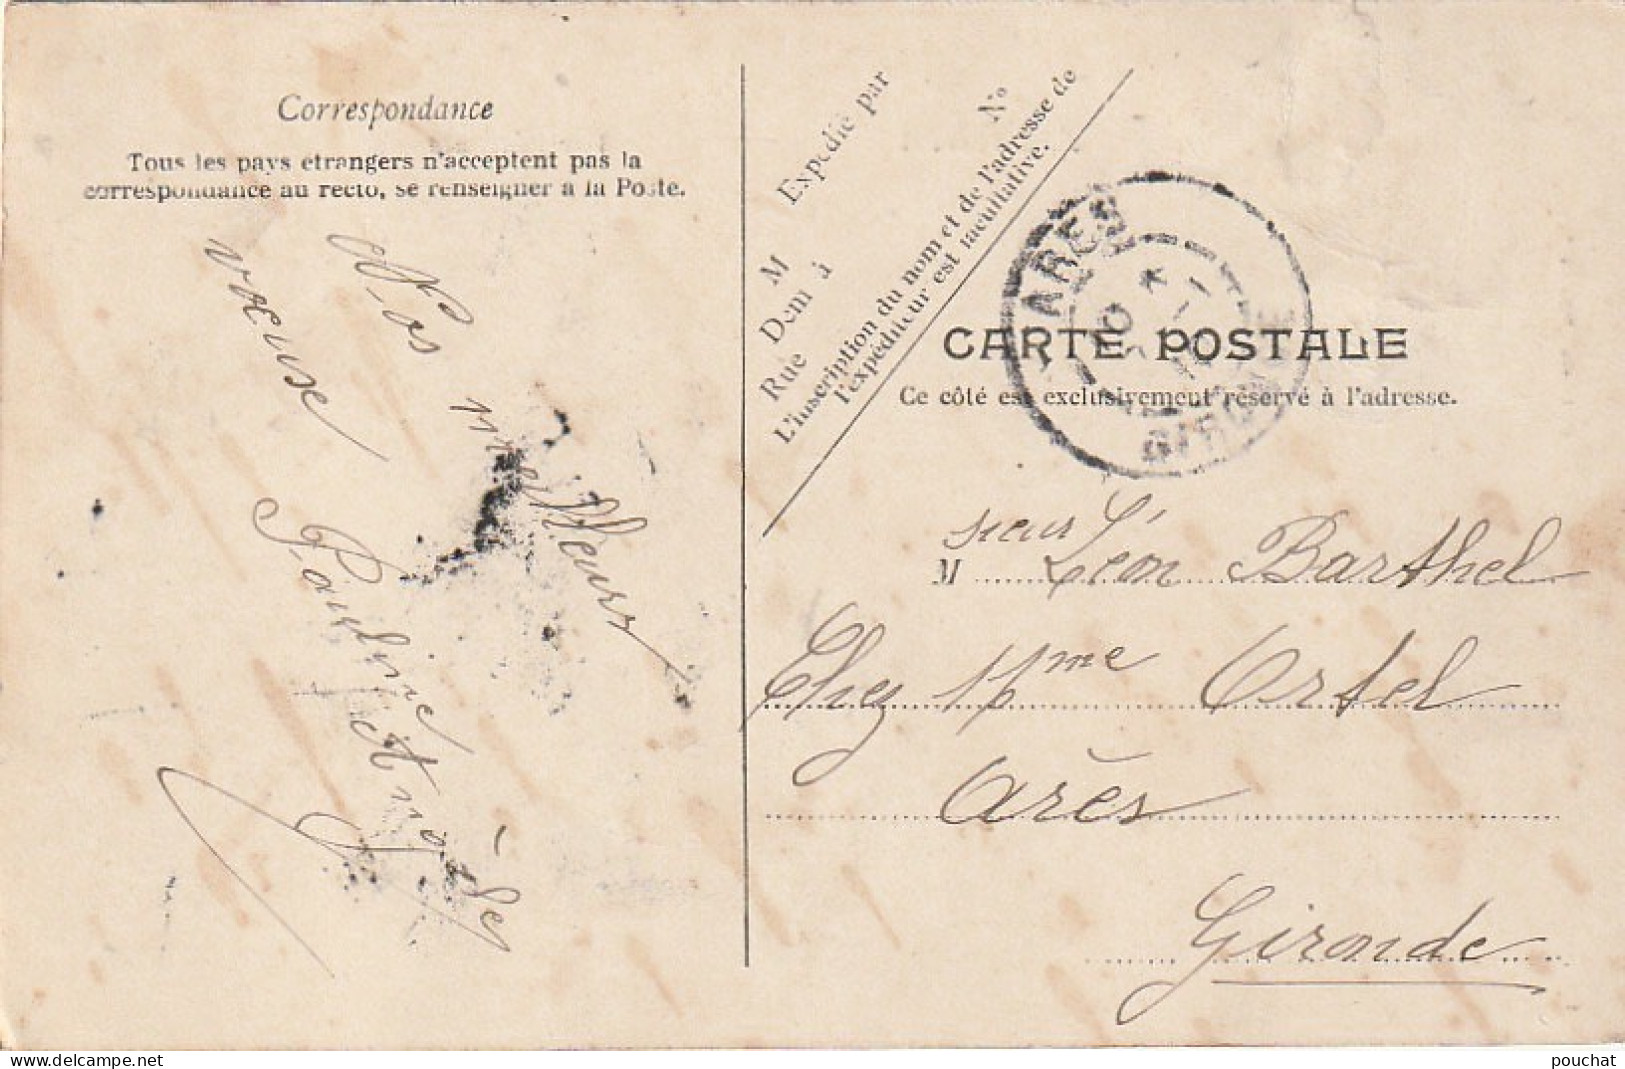 Correspondance
Tous les pays etrangers n'acceptent pas la
correspondance au recto, se renseigner à la Poste.
Nos meilleurs
voeux
Pauline
Expédié par
M
Dem à
Rue
No
L'inscription du nom et de l'adresse de
l'expéditeur est facultative.
ARES
GIRONDE
CARTE POSTALE
Ce côté est exclusivement réservé à l'adresse.
M sieur Léon Barthel
Chez Mme Ortel
Arès
Gironde
pouchat